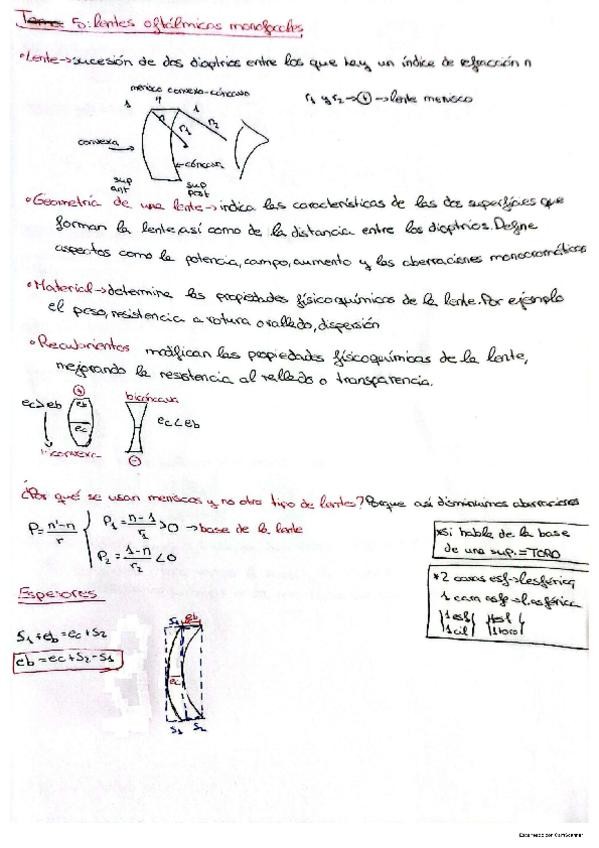 Tema 5: lentes oftálmicas monofocales
•Lente→sucesión de dos dioptrios entre los que hay un índice de refracción n
menisco convexo-cóncavo
r1 y r2→⊕→lente menisco
1
1
n
r1
r2
convexa
cóncava
sup ant
sup post
•Geometría de una lente→indica las características de las dos superficies que
forman la lente, así como de la distancia entre los dioptrios. Define
aspectos como la potencia, campo, aumento y las aberraciones monocromáticas
•Material→determina las propiedades fisicoquímicas de la lente. Por ejemplo
el peso, resistencia a rotura o rallado, dispersión
•Recubrimientos modifican las propiedades fisicoquímicas de la lente,
mejorando la resistencia al rallado o transparencia.
ec>eb
⊕
eb
ec
bicóncava
ec<eb
⊖
¿Por qué se usan meniscos y no otro tipo de lentes? Porque así disminuimos aberraciones
P=n'-n/r
P1=n-1/r1>0→base de la lente
P2=1-n/r2<0
*si habla de la base
de una sup.=TORO
*2 caras esf→l.esférica
1 cara esf→l.esférica
1esf
1cil
1esf
1toro
Espesores
S1+eb=ec+S2
eb=ec+S2-S1
S1
eb
ec
S1
S2
Escaneado con CamScanner